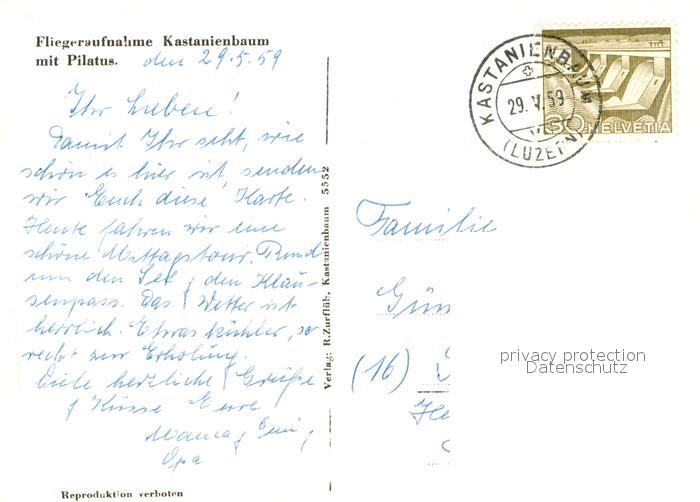 Fliegeraufnahme Kastanienbaum
mit Pilatus.
den 29.5.59
Ihr Lieben!
Damit Ihr seht, wie
schön es hier ist senden
wir Euch diese Karte.
Heute fahren wir eine
schöne Mittagstour. Rund
um den See, den Klau-
senpass. Das Wetter ist
herrlich. Etwas kühler, so
recht zur Erholung.
Viele herzliche Grüße
Küsse Eure
Mama, Omi,
Opa
Reproduktion verboten
Verlag: R. Zurflüh, Kastanienbaum 5552
KASTANIENBAUM
29.V.59
(LUZERN)
30 HELVETIA
Familie
Gün
(16)
privacy protection
Datenschutz